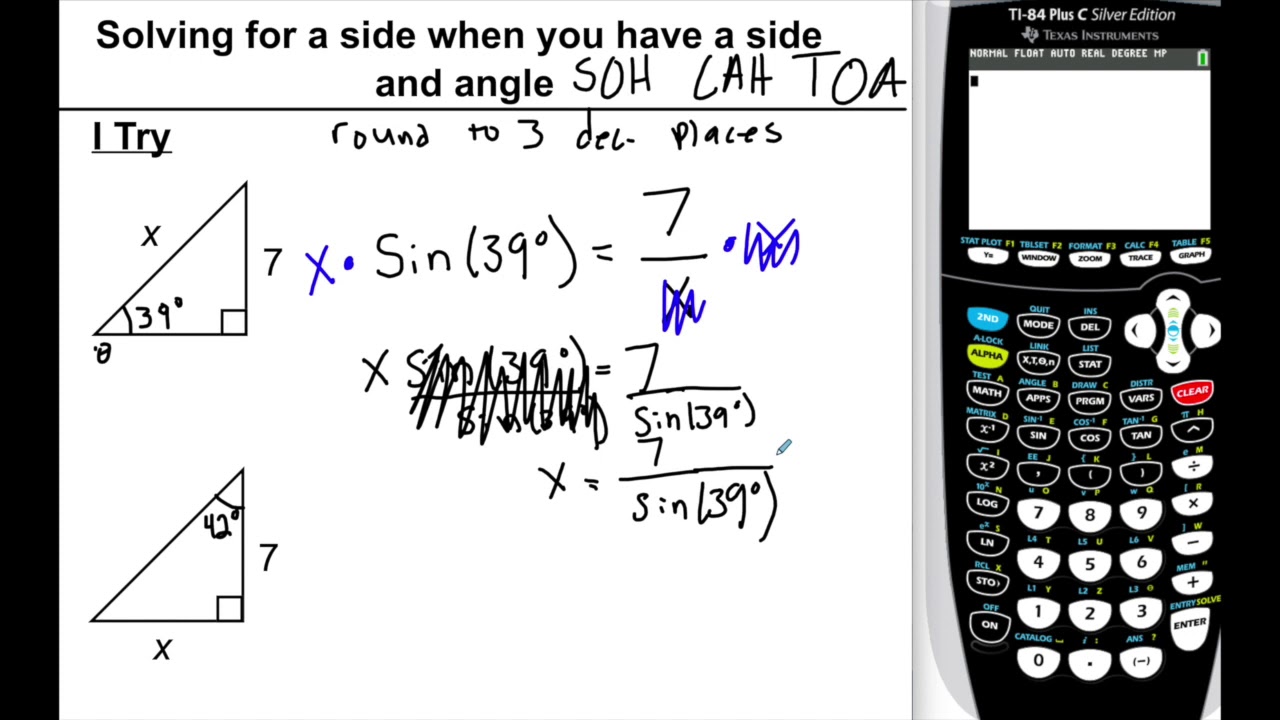 Solving for a side when you have a side
and angle SOH CAH TOA
I Try
round to 3 dec. places
x
7
39°
θ
x · Sin(39°) = 7
x Sin(39°) = 7
sin(39°)
7
x =
sin(39°)
42°
7
x
TI-84 Plus C Silver Edition
TEXAS INSTRUMENTS
NORMAL FLOAT AUTO REAL DEGREE MP
STAT PLOT F1 TBLSET F2 FORMAT F3 CALC F4 TABLE F5
Y= WINDOW ZOOM TRACE GRAPH
QUIT INS
2ND MODE DEL
A-LOCK LINK LIST
ALPHA X,T,θ,n STAT
TEST A ANGLE B DRAW C DISTR
MATH APPS PRGM VARS CLEAR
MATRIX D SIN⁻¹ E COS⁻¹ F TAN⁻¹ G π H
x⁻¹ SIN COS TAN ^
√ I EE J { K } L e M
x² , ( ) ÷
10ˣ N u O v P w Q [ R
LOG 7 8 9 ×
eˣ S L4 T L5 U L6 V ] W
LN 4 5 6 −
RCL X L1 Y L2 Z L3 θ MEM "
STO› 1 2 3 +
OFF CATALOG ⎵ i : ANS ? ENTRY SOLVE
ON 0 . (−) ENTER